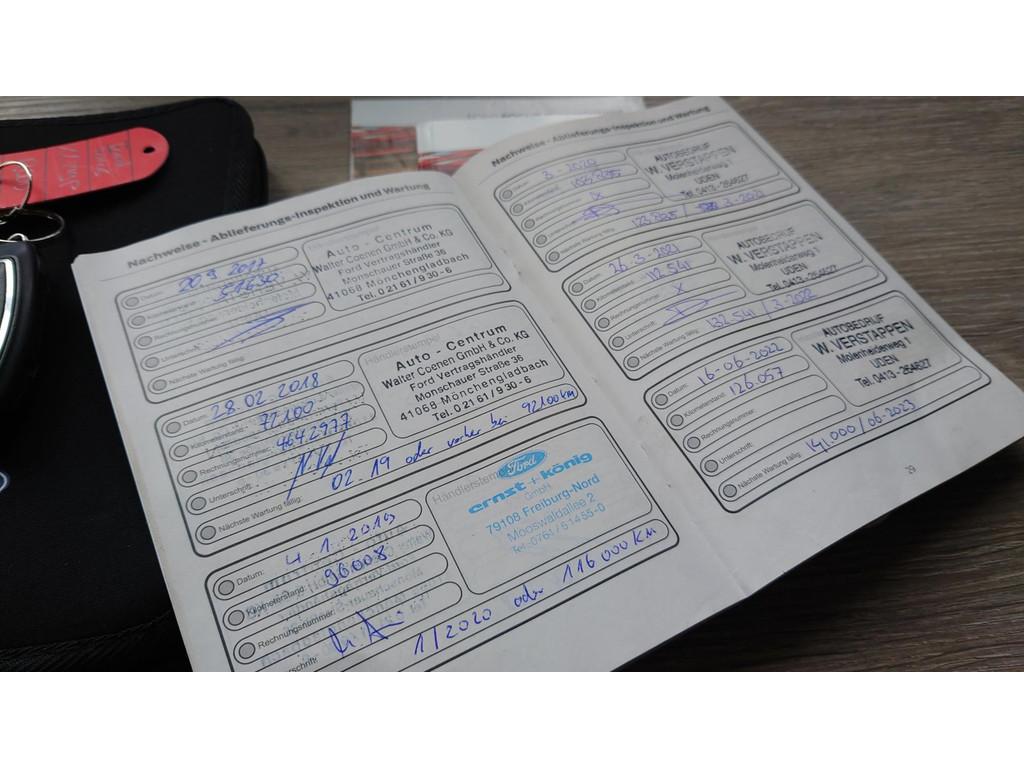 Nachweise - Ablieferungs-Inspektion und Wartung
Datum:
20.9.2017
51630
Nächste Wartung fällig:
Auto - Centrum
Walter Coenen GmbH & Co. KG
Ford Vertragshändler
Monschauer Straße 36
41068 Mönchengladbach
Tel. 0 21 61 / 9 30 - 6
Datum: 28.02.2018
Kilometerstand: 72100
Rechnungsnummer: 4642977
Unterschrift:
Nächste Wartung fällig: 02.19 oder vorher bei 92100km
Händlerstempel
Auto - Centrum
Walter Coenen GmbH & Co. KG
Ford Vertragshändler
Monschauer Straße 36
41068 Mönchengladbach
Tel. 0 21 61 / 9 30 - 6
Datum: 4.1.2019
Kilometerstand: 96008
Rechnungsnummer:
1/2020 oder 116000 km
Händlerstem
Ford
ernst + könig
GmbH
79108 Freiburg-Nord
Mooswaldallee 2
Tel.: 0761/51455-0
Nachweise - Ablieferungs-Inspektion und Wartung
Datum: 3-2020
Nächste Wartung fällig:
AUTOBEDRIJF
W. VERSTAPPEN
Molenheideweg 1
UDEN
Tel. 0413 - 264627
Datum: 26.3.2021
Kilometerstand: 112.541
Rechnungsnummer: X
Unterschrift:
Nächste Wartung fällig: 132.541 / 3.2022
AUTOBEDRIJF
W. VERSTAPPEN
Molenheideweg 1
UDEN
Tel. 0413 - 264627
Datum: 16-06-2022
Kilometerstand: 126.057
Rechnungsnummer:
Unterschrift:
Nächste Wartung fällig: 141.000 / 06.2023
AUTOBEDRIJF
W. VERSTAPPEN
Molenheideweg 1
UDEN
Tel. 0413 - 264627
29